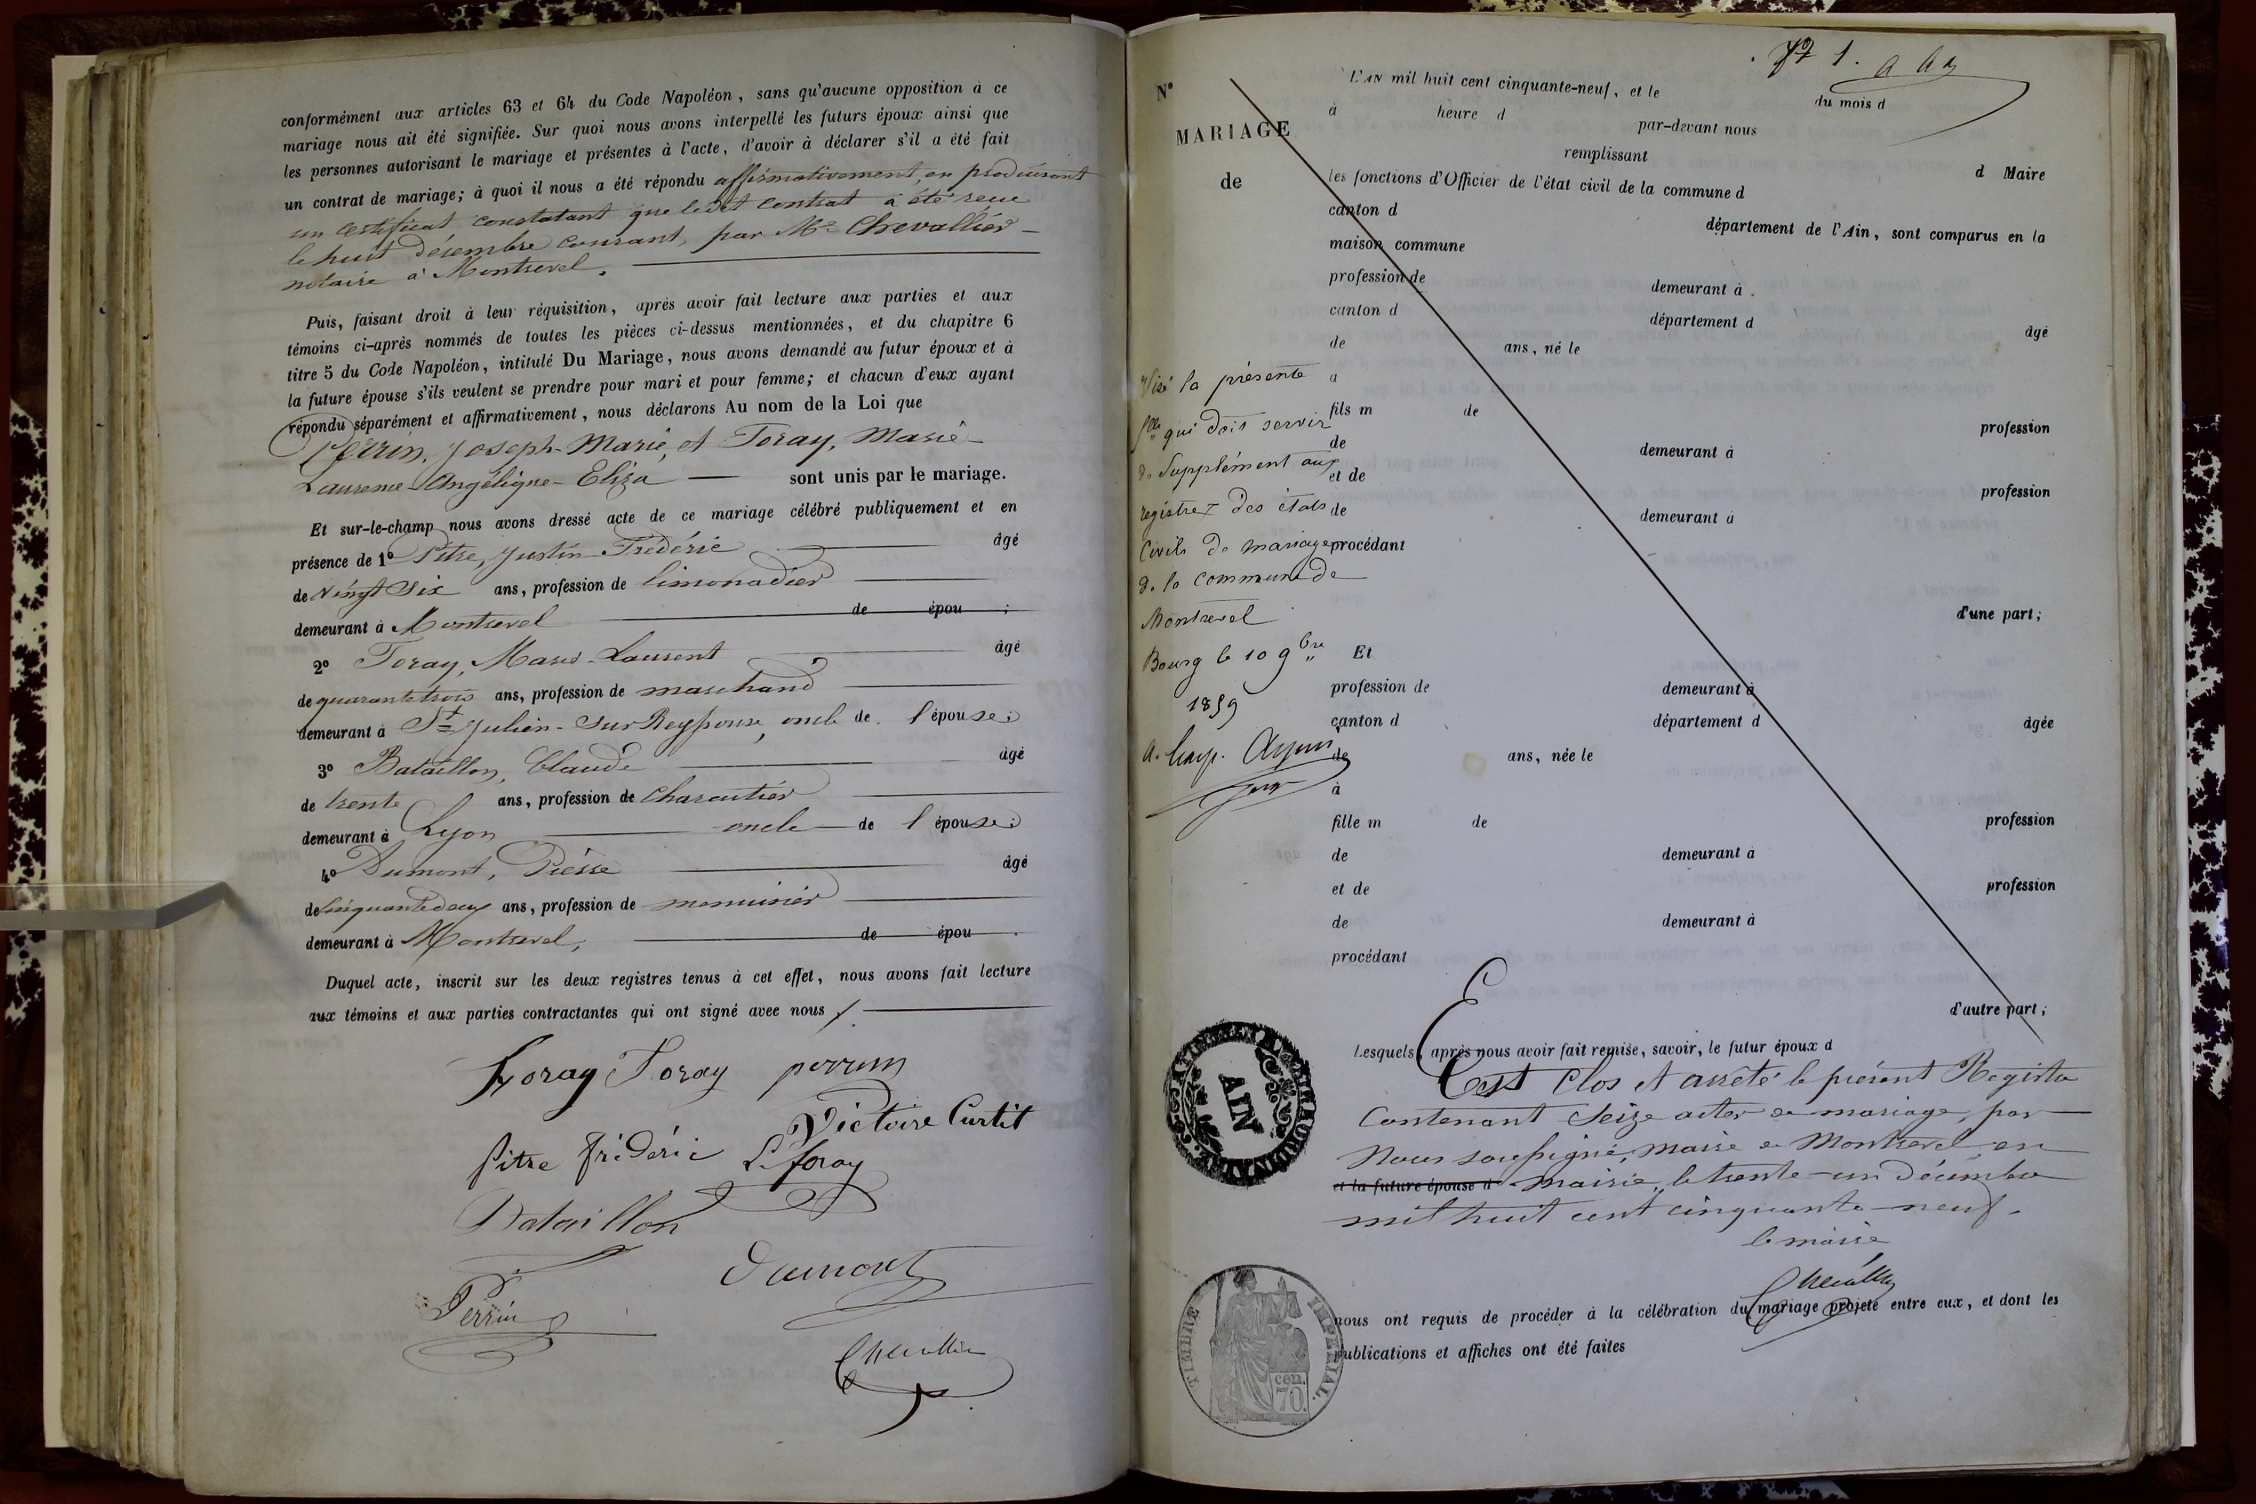 conformément aux articles 63 et 64 du Code Napoléon, sans qu'aucune opposition à ce
mariage nous ait été signifiée. Sur quoi nous avons interpellé les futurs époux ainsi que
les personnes autorisant le mariage et présentes à l'acte, d'avoir à déclarer s'il a été fait
un contrat de mariage; à quoi il nous a été répondu affirmativement, en produisant
un certificat constatant que ledit contrat a été reçu
le huit décembre courant, par Me Chevallier
notaire à Montrevel.
Puis, faisant droit à leur réquisition, après avoir fait lecture aux parties et aux
témoins ci-après nommés de toutes les pièces ci-dessus mentionnées, et du chapitre 6
titre 5 du Code Napoléon, intitulé Du Mariage, nous avons demandé au futur époux et à
la future épouse s'ils veulent se prendre pour mari et pour femme; et chacun d'eux ayant
répondu séparément et affirmativement, nous déclarons Au nom de la Loi que
Perrin, Joseph-Marie, et Foray, Marie-
Laurence-Angélique-Eliza — sont unis par le mariage.
Et sur-le-champ nous avons dressé acte de ce mariage célébré publiquement et en
présence de 1° Pitre, Justin-Frédéric âgé
de vingt six ans, profession de limonadier
demeurant à Montrevel de épou ;
2° Foray, Marie-Laurent âgé
de quarante trois ans, profession de marchand
demeurant à St Julien-sur-Reyssouze, oncle de l'épouse;
3° Bataillon, Claude âgé
de trente ans, profession de charcutier
demeurant à Lyon oncle de l'épouse;
4° Dumont, Pierre âgé
de cinquante deux ans, profession de menuisier
demeurant à Montrevel, de épou .
Duquel acte, inscrit sur les deux registres tenus à cet effet, nous avons fait lecture
aux témoins et aux parties contractantes qui ont signé avec nous
Foray Foray perrin
Victoire Curtit
Pitre frédéric L. foray
Bataillon
Dumont
Perrin
Chevallier
N°
MARIAGE
de
L'AN mil huit cent cinquante-neuf, et le du mois d
à heure d par-devant nous
remplissant d Maire
les fonctions d'Officier de l'état civil de la commune d
canton d département de l'Ain, sont comparus en la
maison commune
profession de demeurant à
canton d département d âgé
de ans, né le
à
fils m de profession
de demeurant à
et de profession
de demeurant à
procédant
d'une part;
Et
profession de demeurant à
canton d département d âgée
de ans, née le
à
fille m de profession
de demeurant à
et de profession
de demeurant à
procédant
d'autre part;
Visé la présente
flle qui doit servir
de Supplément aux
registres des états
Civils de mariage
de la commune de
Montrevel
Bourg le 10 9bre
1859
Lesquels, après nous avoir fait remise, savoir, le futur époux d
Est clos et arrêté le présent Registre
Contenant seize actes de mariage, par
Nous soussigné, maire de Montrevel en
et la future épouse d mairie, le trente-un décembre
mil huit cent cinquante-neuf.
le maire
Chevallier
nous ont requis de procéder à la célébration du mariage projeté entre eux, et dont les
publications et affiches ont été faites
AIN
TIMBRE IMPERIAL.
cen.
70.